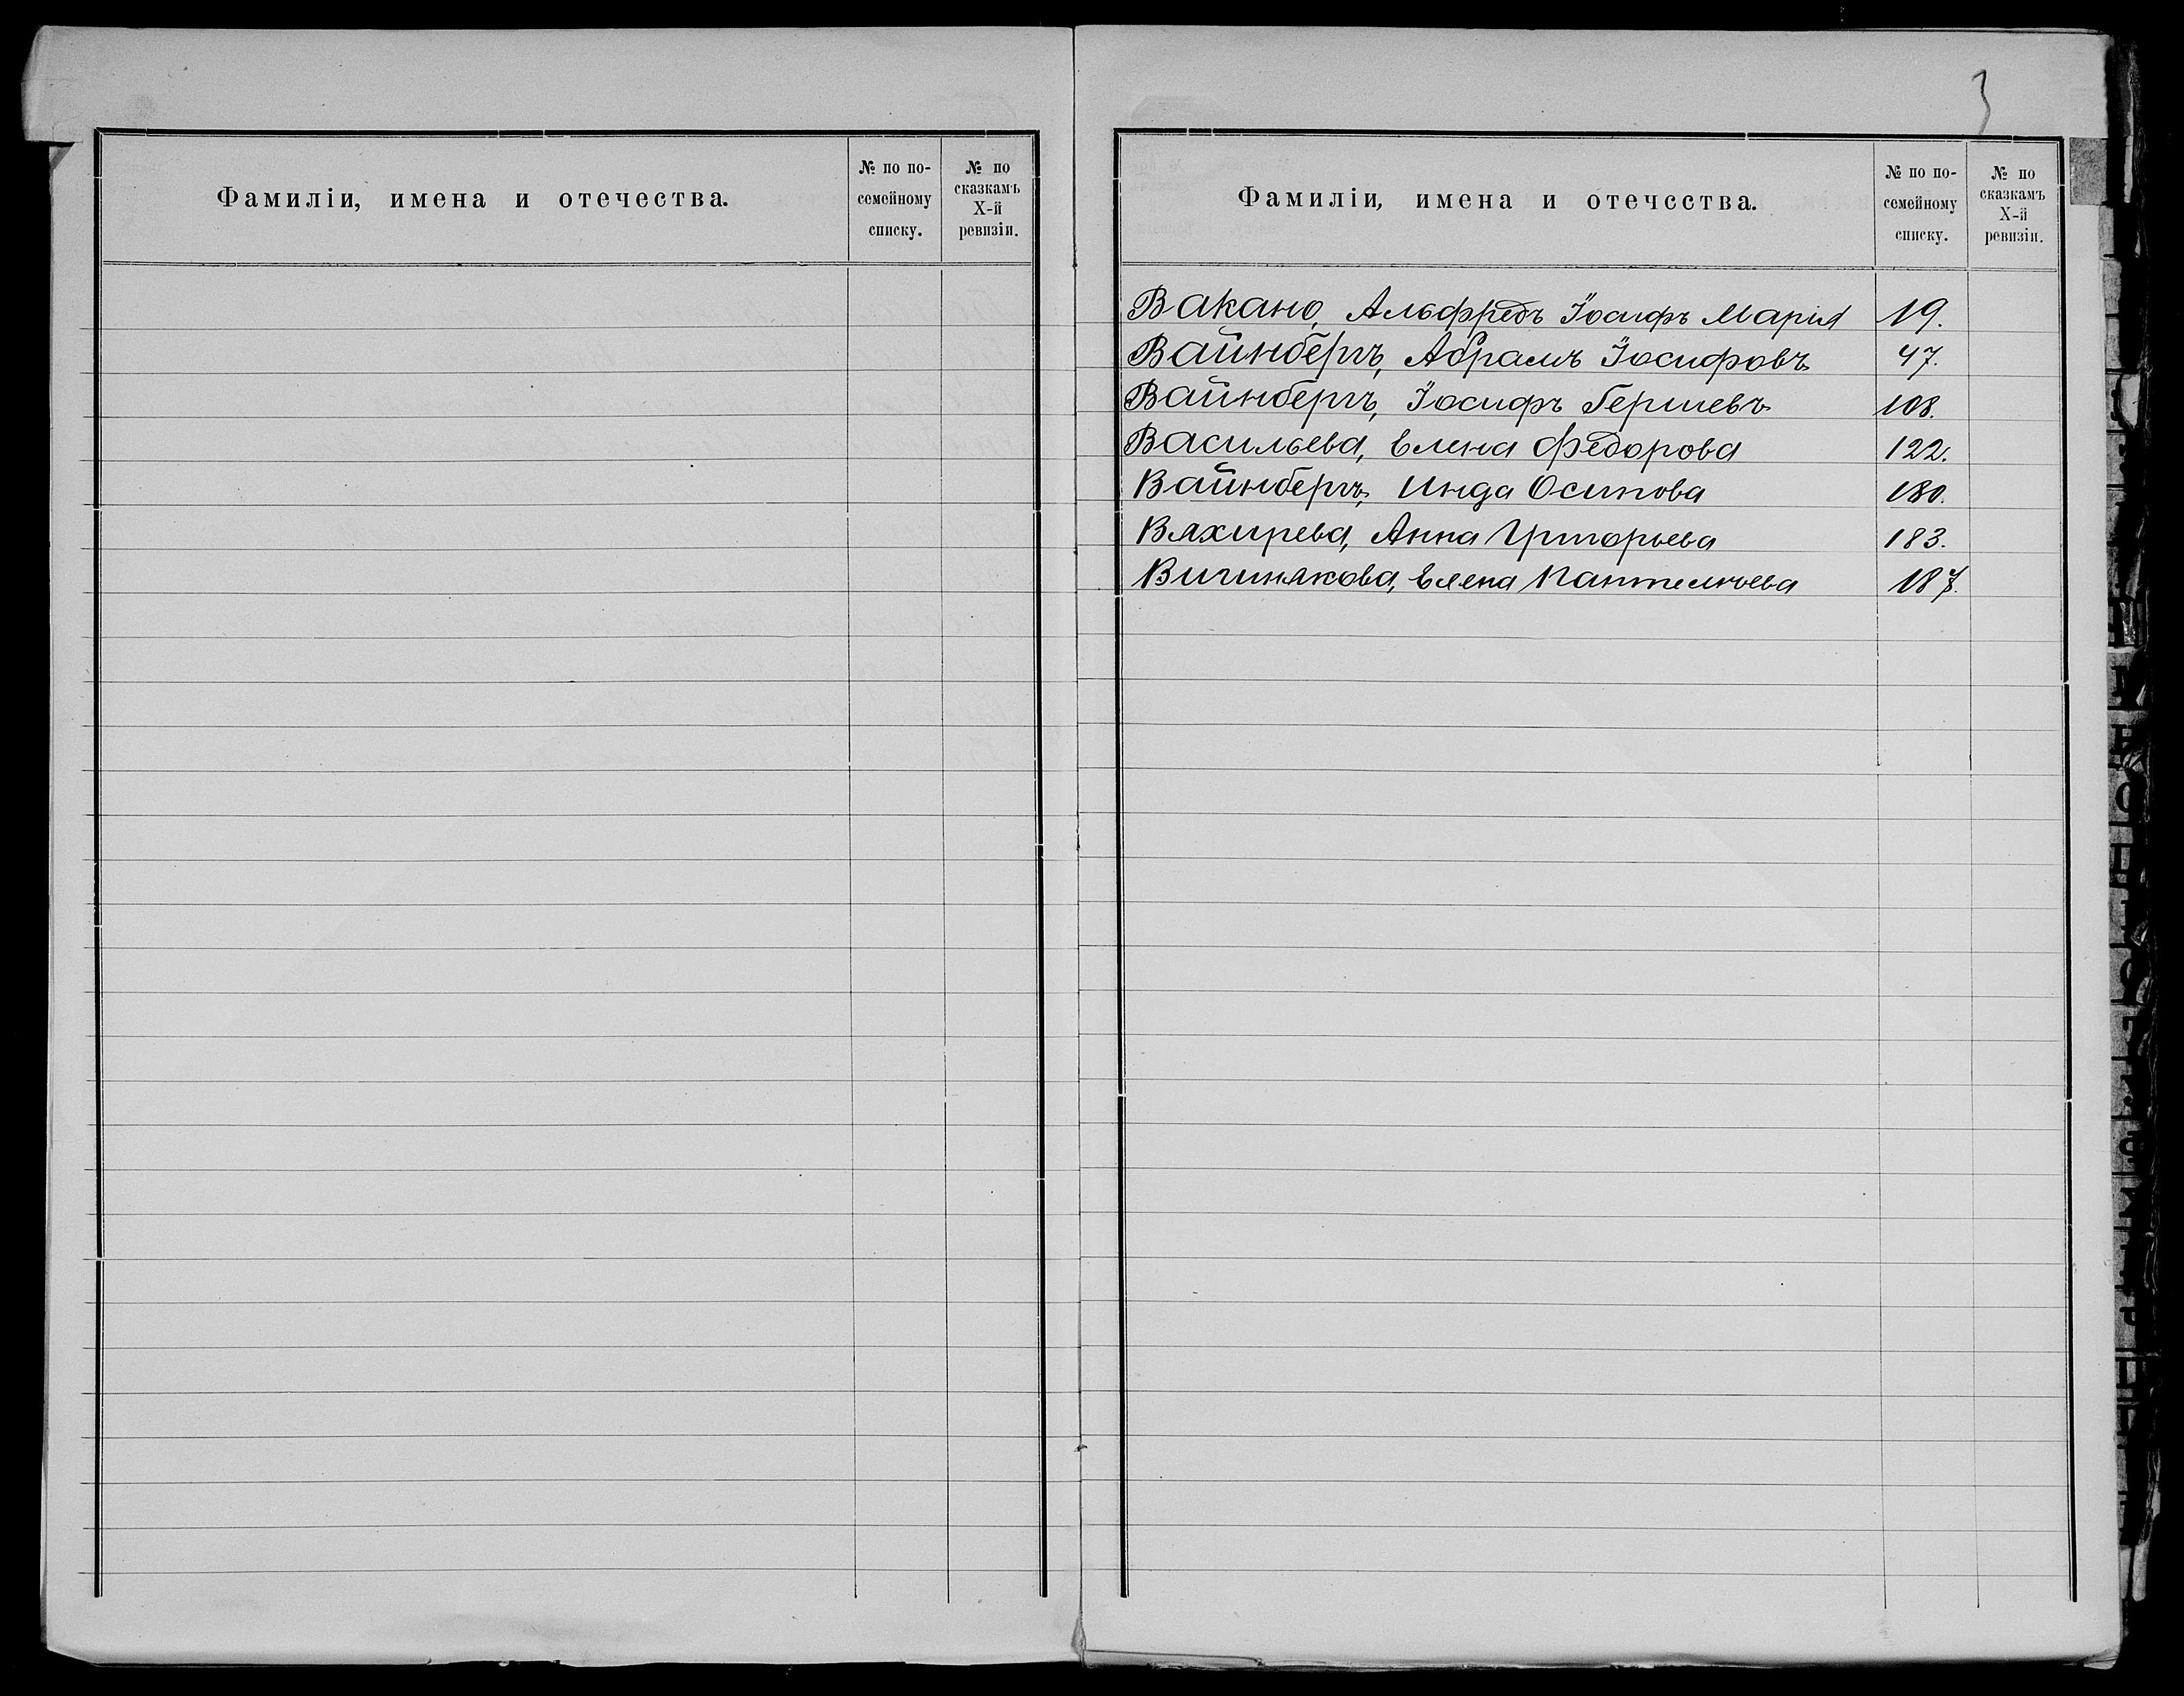 Фамиліи, имена и отечества.
№ по по-
семейному
списку.
№ по
сказкамъ
X-й
ревизіи.
3
Фамиліи, имена и отечества.
№ по по-
семейному
списку.
№ по
сказкамъ
X-й
ревизіи.
Вакано, Альфредъ Іосифъ Марія 19.
Вайнбергъ, Абрамъ Іосифовъ 47.
Вайнбергъ, Іосифъ Гершевъ 108.
Васильева, Елена Федорова 122.
Вайнбергъ, Инда Осипова 180.
Вяхирева, Анна Григорьева 183.
Вичинякова, Елена Пантелѣева 187.